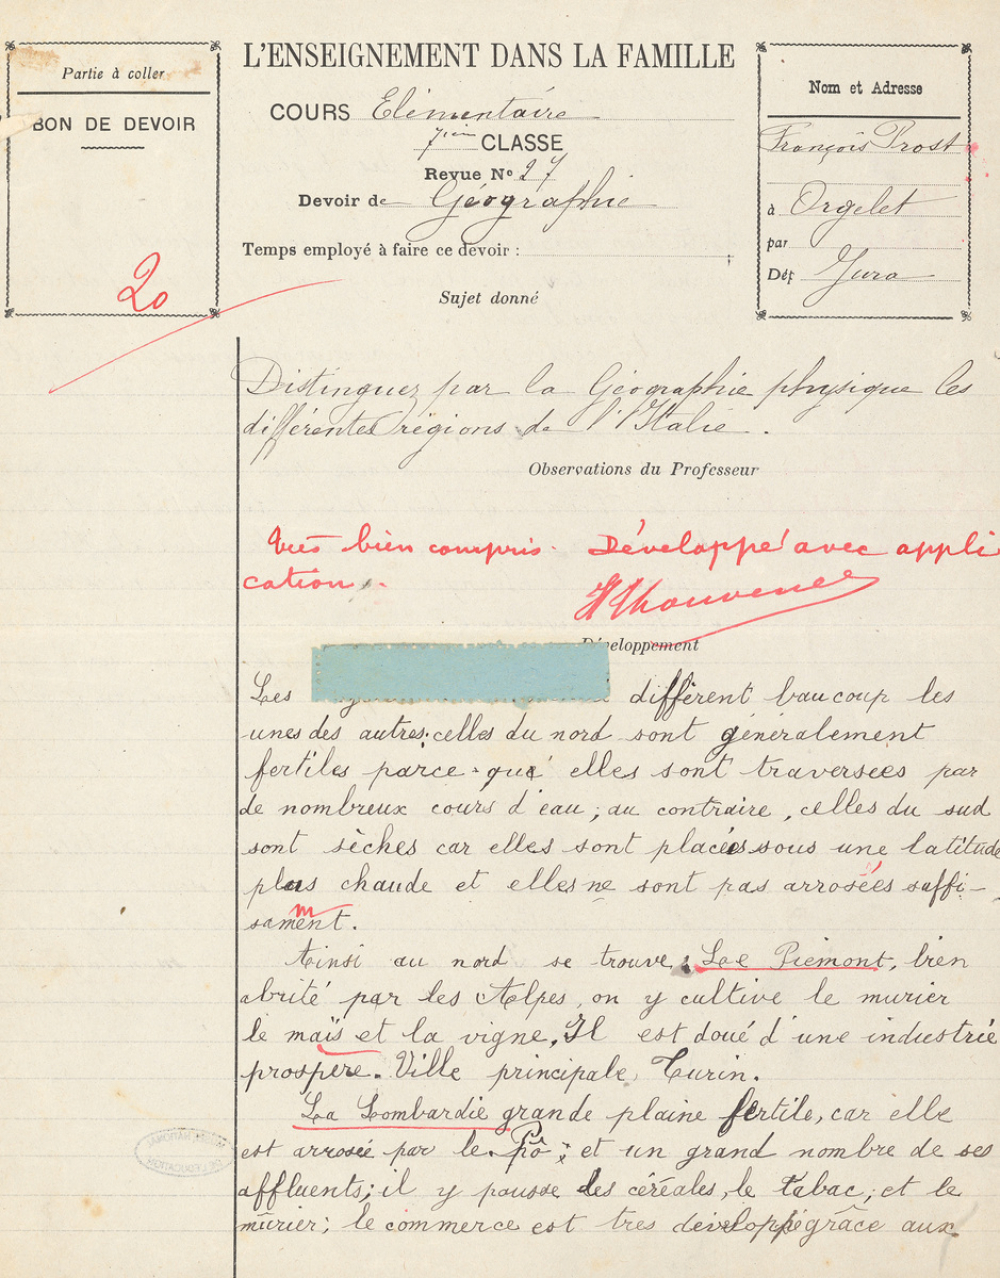 Partie à coller
BON DE DEVOIR
20
L'ENSEIGNEMENT DANS LA FAMILLE
COURS Elémentaire
7ième CLASSE
Revue No 27
Devoir de Géographie
Temps employé à faire ce devoir :
Sujet donné
Nom et Adresse
François Prost
à Orgelet
par
Dép Jura
Distinguez par la Géographie physique les
différentes régions de l'Italie.
Observations du Professeur
Très bien compris. Développé avec appli
cation.
Développement
Les diffèrent beaucoup les
unes des autres; celles du nord sont généralement
fertiles parce que elles sont traversées par
de nombreux cours d'eau; au contraire, celles du sud
sont sèches car elles sont placées sous une latitude
plus chaude et elles ne sont pas arrosées suffi-
sament.
m
Ainsi au nord se trouve, Le Piémont, bien
abrité par les Alpes, on y cultive le murier
le maïs et la vigne, Il est doué d'une industrie
prospère. Ville principale, Turin.
La Lombardie grande plaine fertile, car elle
est arrosée par le Pô; et un grand nombre de ses
affluents; il y pousse des céréales, le tabac, et le
mûrier; le commerce est très développé grâce aux